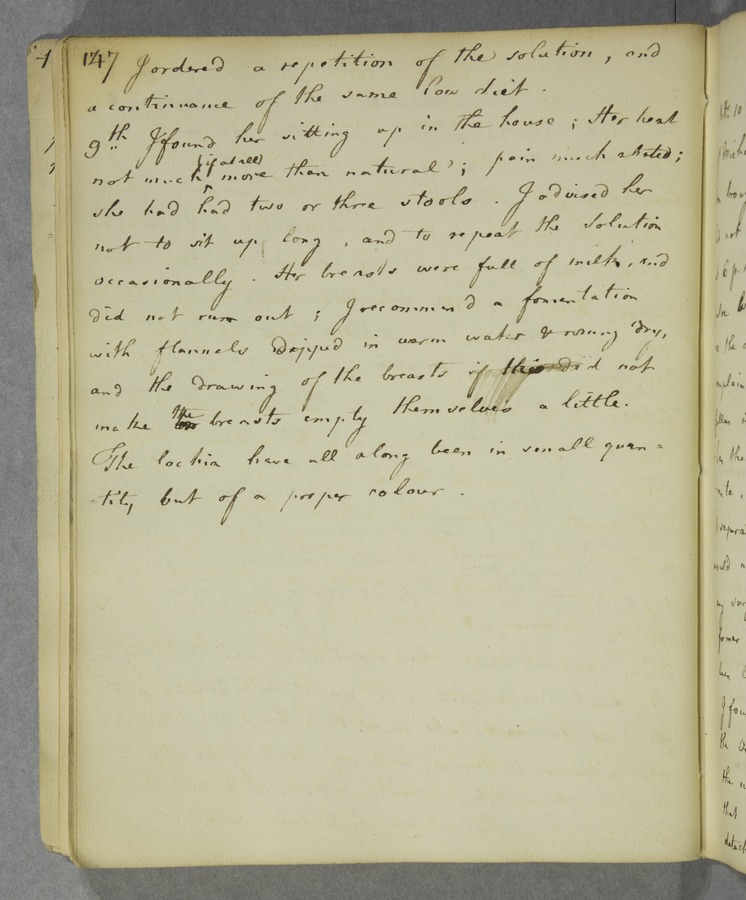 147 I ordered a repetition of the solution, and
a continuance of the same low diet.
9th I found her sitting up in the house; Her heat
not much (if at all) more than natural; pain much abated;
she had had two or three stools. I advised her
not to sit up long, and to repeat the Solution
occasionally. Her breasts were full of milk, and
did not run out; I recommend a fomentation
with flannels dipped in warm water & wrung dry,
and the drawing of the breasts if this did not
make the breasts empty themselves a little.
The lochia have all along been in small quan=
=tity but of a proper colour.